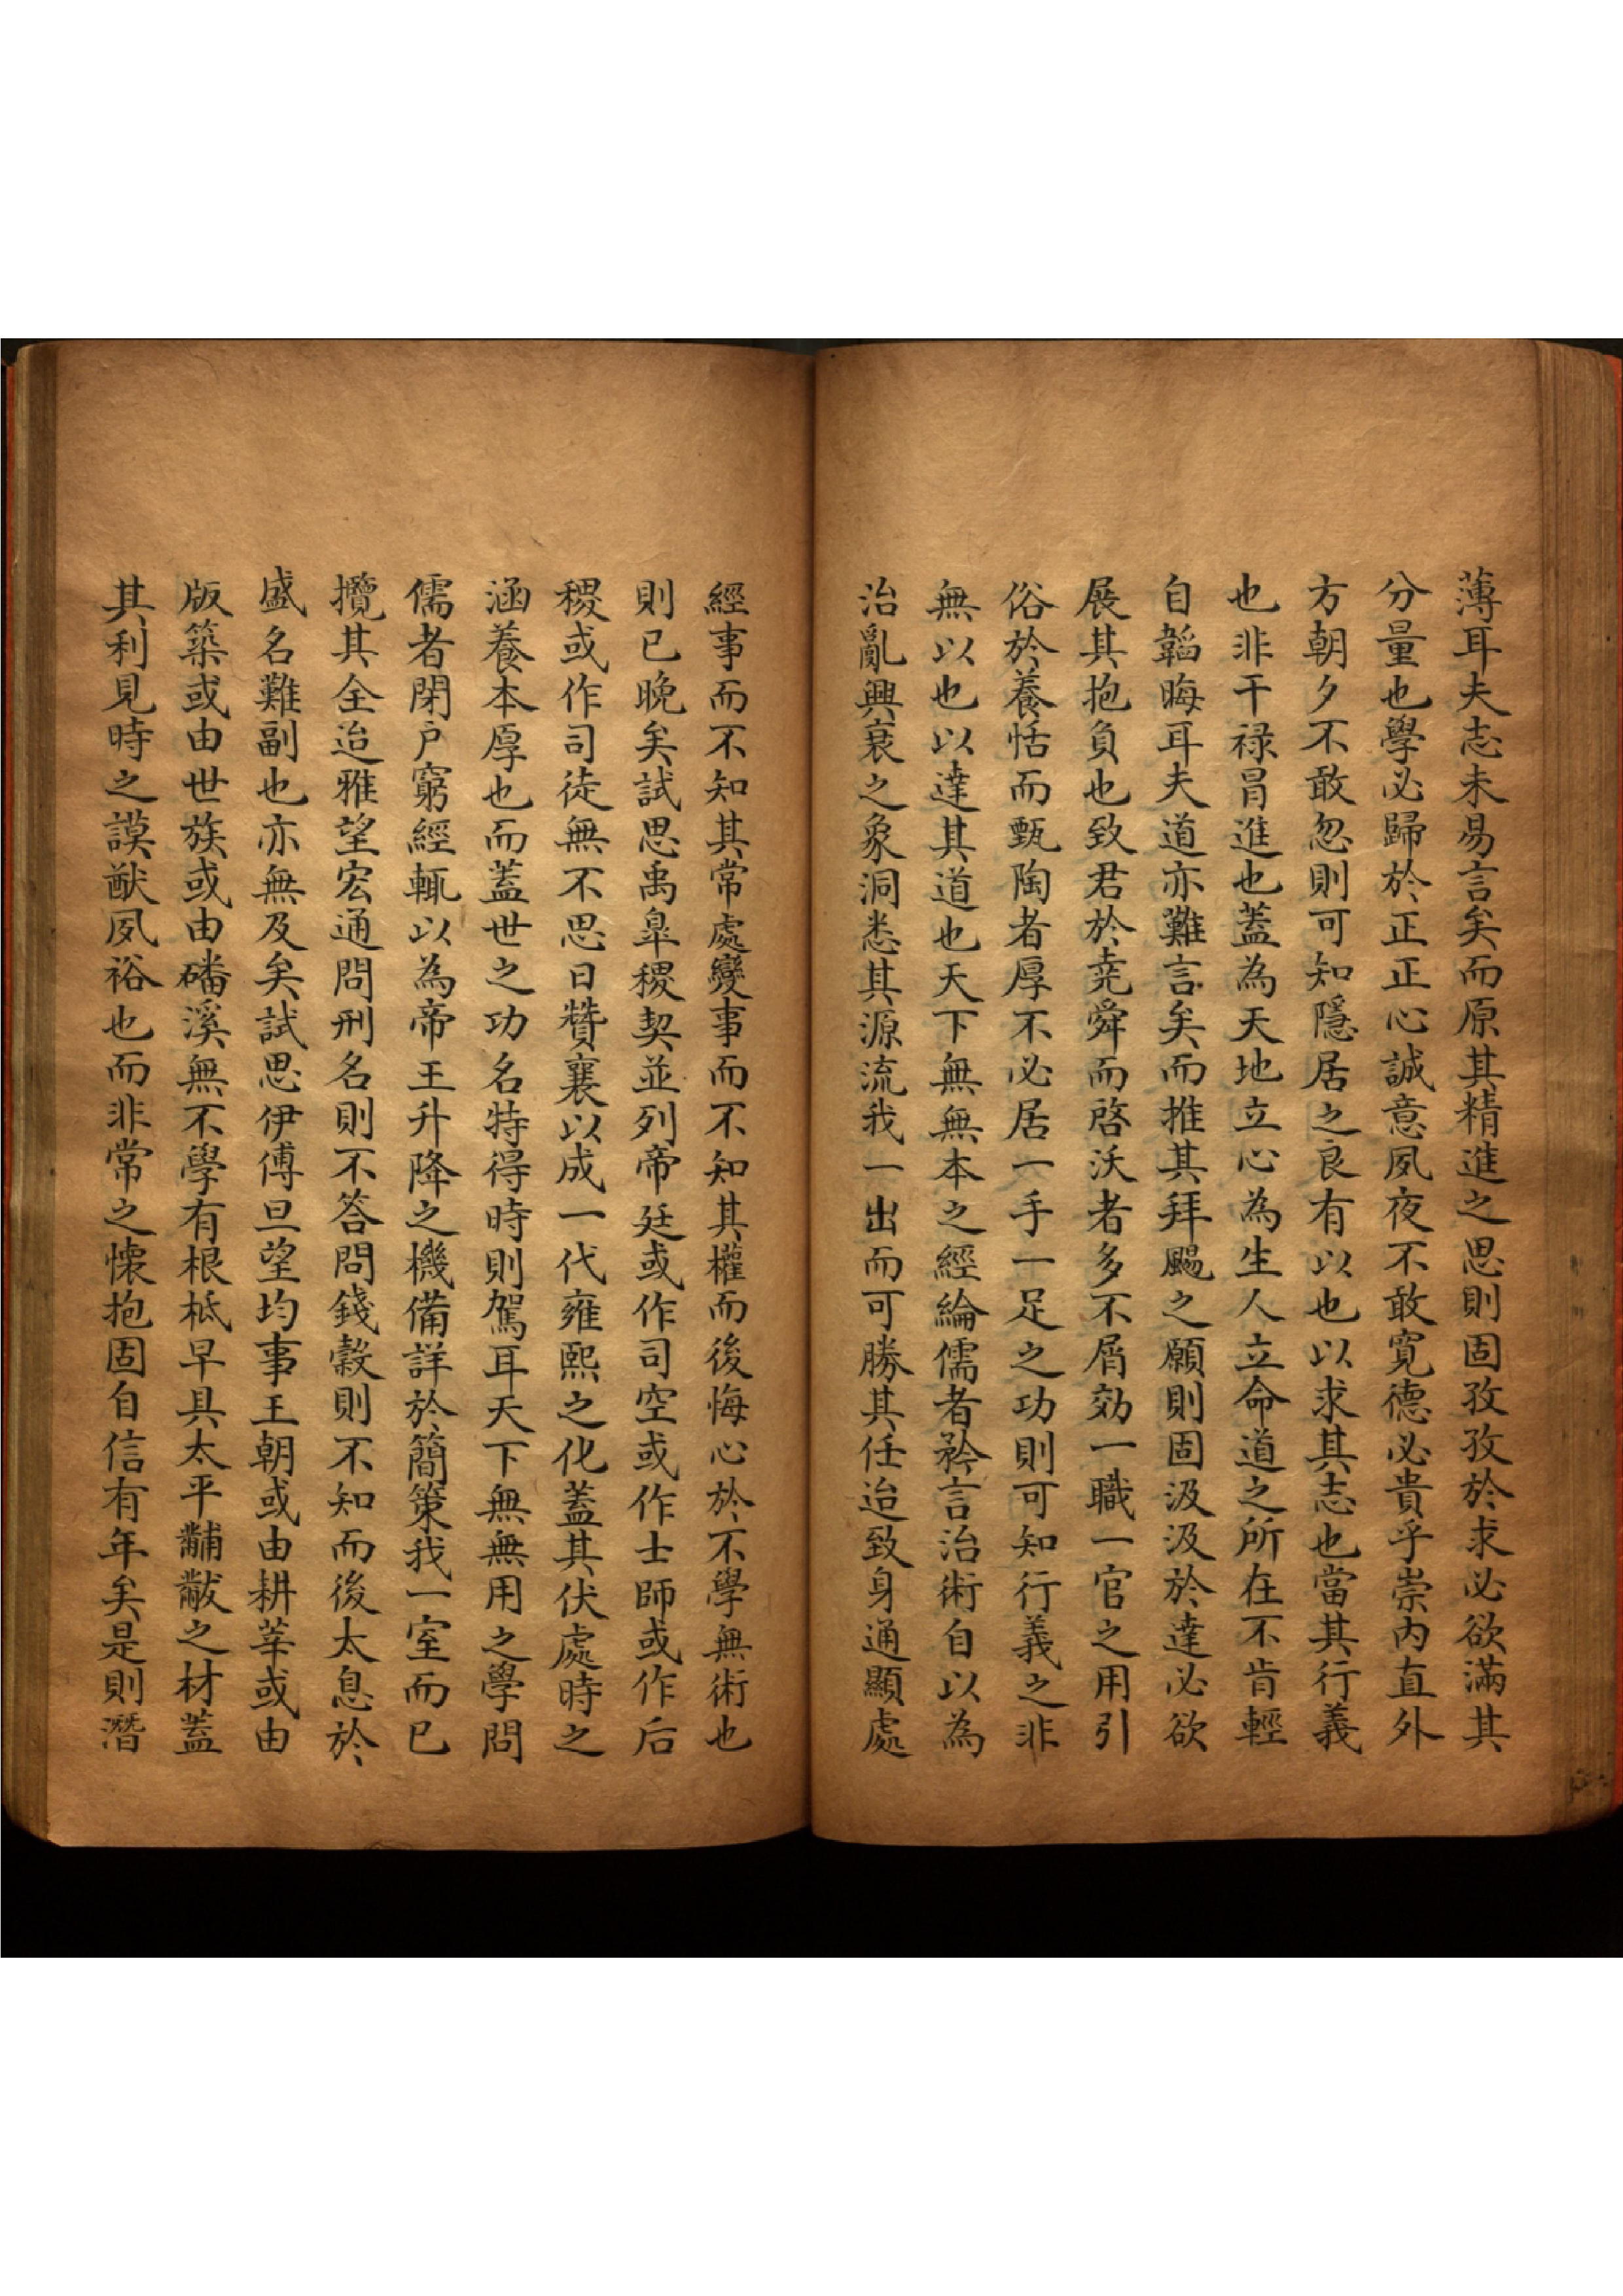 薄耳夫志未易言矣而原其精進之思則固孜孜於求必欲滿其
分量也學必歸於正正心誠意夙夜不敢寬德必貴乎崇内直外
方朝夕不敢忽則可知隱居之良有以也以求其志也當其行義
也非干禄冒進也蓋為天地立心為生人立命道之所在不肯輕
自韜晦耳夫道亦難言矣而推其拜颺之願則固汲汲於達必欲
展其抱負也致君於堯舜而啓沃者多不屑効一職一官之用引
俗於養恬而甄陶者厚不必居一手一足之功則可知行義之非
無以也以達其道也天下無無本之經綸儒者矜言治術自以為
治亂興衰之象洞悉其源流我一出而可勝其任迨致身通顯處
經事而不知其常處變事而不知其權而後悔心於不學無術也
則已晚矣試思禹臯稷契並列帝廷或作司空或作士師或作后
稷或作司徒無不思日贊襄以成一代雍熙之化蓋其伏處時之
涵養本厚也而蓋世之功名特得時則駕耳天下無無用之學問
儒者閉户窮經輒以為帝王升降之機備詳於簡策我一室而已
攬其全迨雅望宏通問刑名則不答問錢穀則不知而後太息於
盛名難副也亦無及矣試思伊傅旦望均事王朝或由耕莘或由
版築或由世族或由磻溪無不學有根柢早具太平黼黻之材蓋
其利見時之謨猷夙裕也而非常之懷抱固自信有年矣是則潛